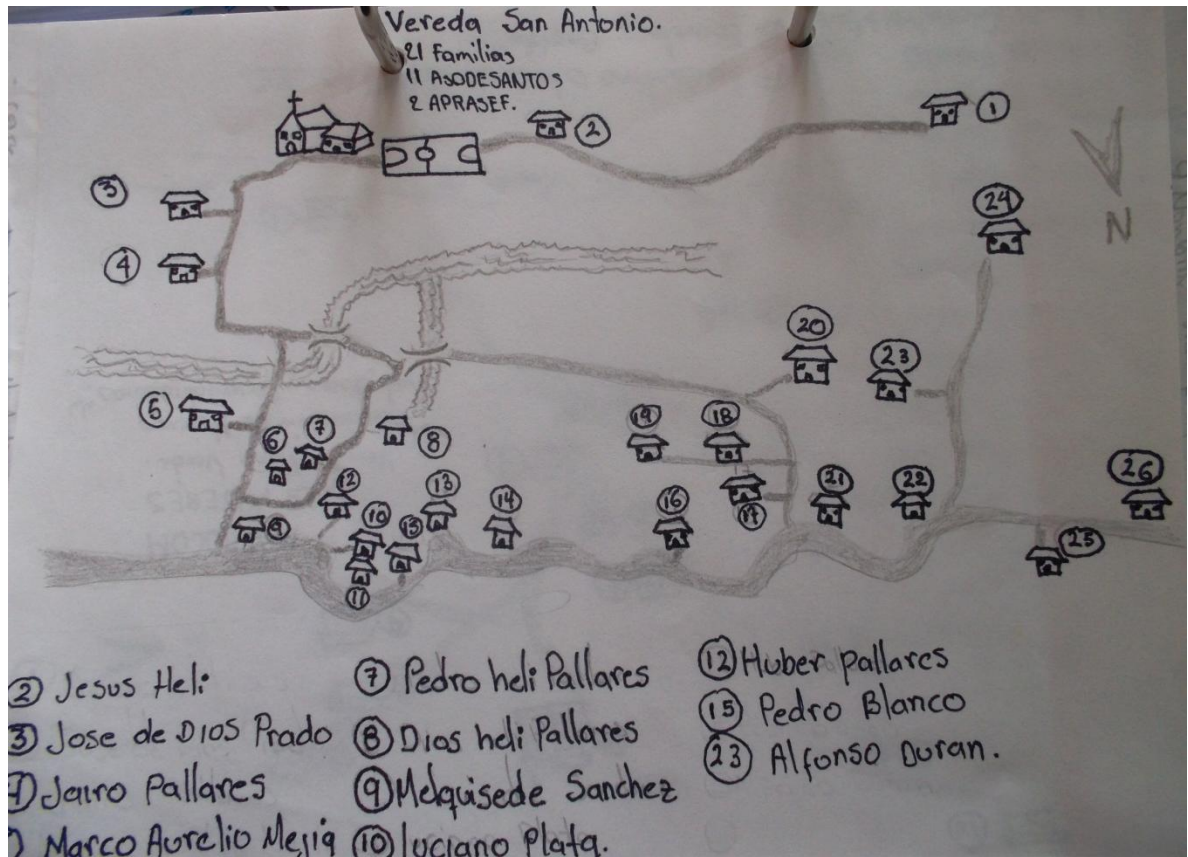 Vereda San Antonio.
21 Familias
11 ASODESANTOS
2 APRASEF.
1
2
3
24
N
4
20
23
5
19
18
6
7
8
26
12
13
14
16
17
21
22
9
10
25
11
2 Jesus Heli
3 Jose de Dios Prado
4 Jairo Pallares
Marco Aurelio Mejia
7 Pedro heli Pallares
8 Dios heli Pallares
9 Melquisede Sanchez
10 luciano Plata.
12 Huber pallares
15 Pedro Blanco
23 Alfonso Duran.